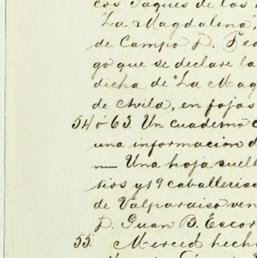 cos Jaques de las
"La Magdalena",
de Campo P. Fed
go que se declare la
dicha de "La Mag
de Chila, en fojas
54 ó 63. Un cuaderno c
una informacion d
— Una hoja suelt
tios y 19 caballerias
de Valparaiso ven
P. Juan B. Escor
55. Merced hech